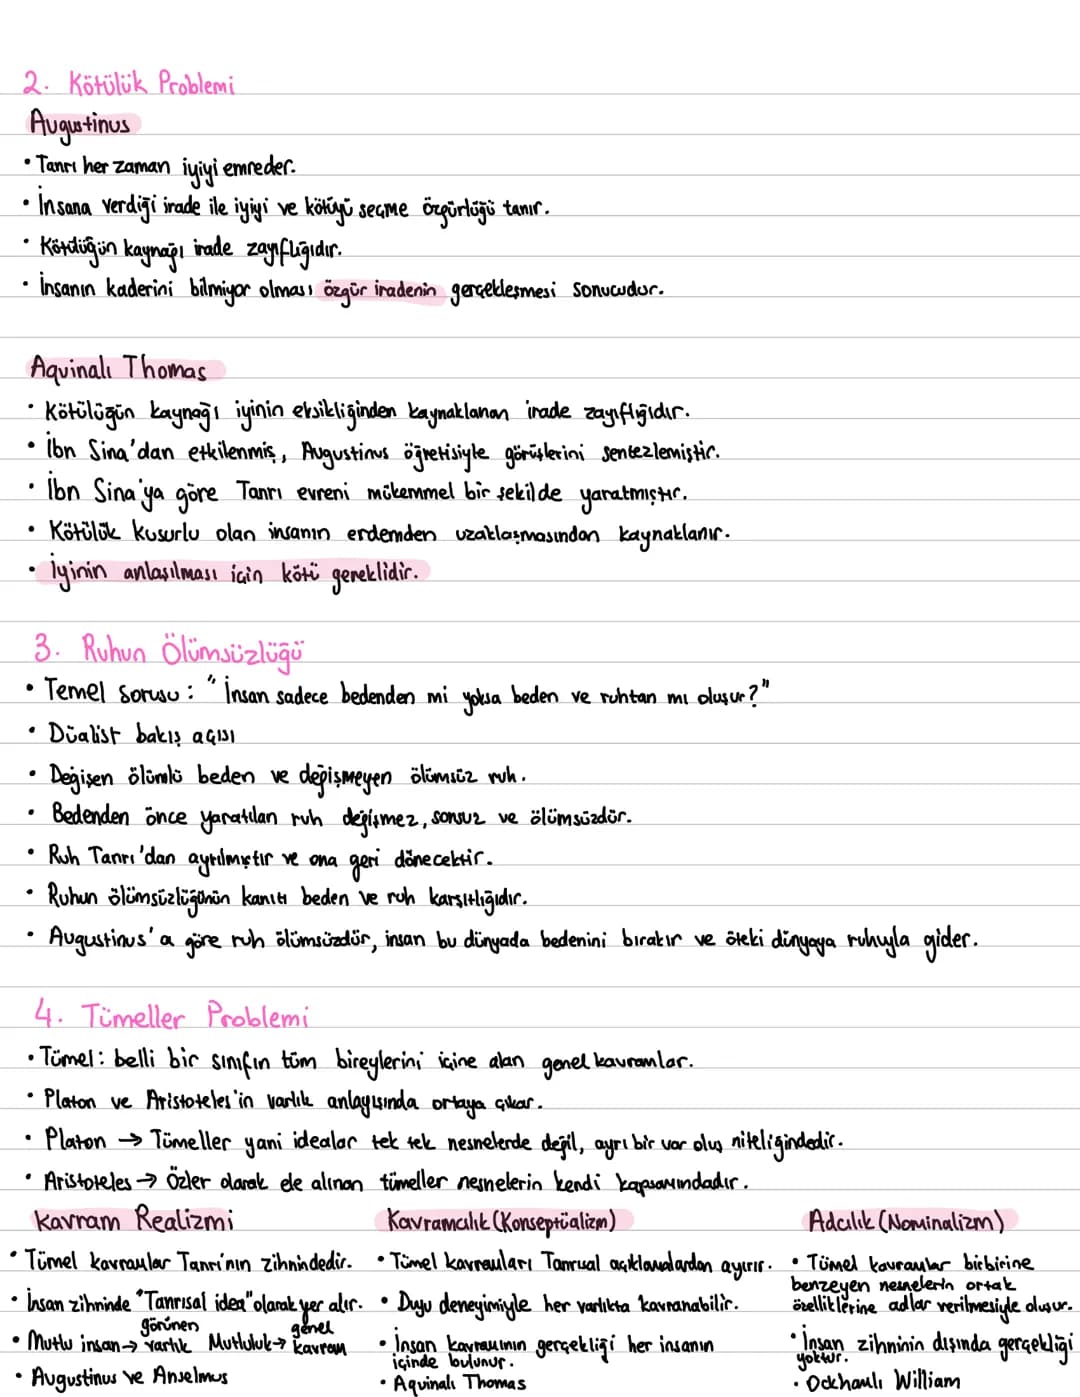 2. Kötülük Problemi
Augustinus
• Tanrı her zaman iyiyi emreder.
• İnsana verdiği irade ile iyiyi ve kötüyü seçme özgürlüğü tanır.
• Kötülüğün kaynağı irade zayıflığıdır.
• İnsanın kaderini bilmiyor olması özgür iradenin gerçekleşmesi sonucudur.
Aquinalı Thomas
• Kötülüğün kaynağı iyinin eksikliğinden kaynaklanan irade zayıflığıdır.
• İbn Sina'dan etkilenmiş, Augustinus öğretisiyle görüşlerini sentezlemiştir.
• İbn Sina'ya göre Tanrı evreni mükemmel bir şekilde yaratmıştır.
• Kötülük kusurlu olan insanın erdemden uzaklaşmasından kaynaklanır.
• İyinin anlaşılması için kötü gereklidir.
3. Ruhun Ölümsüzlüğü
• Temel sorusu: "İnsan sadece bedenden mi yoksa beden ve ruhtan mı oluşur?"
• Düalist bakış açısı
• Değişen ölümlü beden ve değişmeyen ölümsüz ruh.
• Bedenden önce yaratılan ruh değişmez, sonsuz ve ölümsüzdür.
• Ruh Tanrı'dan ayrılmıştır ve ona geri dönecektir.
• Ruhun ölümsüzlüğünün kanıtı beden ve ruh karşıtlığıdır.
• Augustinus'a göre ruh ölümsüzdür, insan bu dünyada bedenini bırakır ve öteki dünyaya ruhuyla gider.
4. Tümeller Problemi
• Tümel: belli bir sınıfın tüm bireylerini içine alan genel kavramlar.
• Platon ve Aristoteles'in varlık anlayışında ortaya çıkar.
• Platon → Tümeller yani idealar tek tek nesnelerde değil, ayrı bir var oluş niteliğindedir.
• Aristoteles → Özler olarak ele alınan tümeller nesnelerin kendi kapsamındadır.
Kavram Realizmi
• Tümel kavramlar Tanrı'nın zihnindedir.
• İnsan zihninde "Tanrısal idea" olarak yer alır.
• Mutlu insan → görünen varlık Mutluluk → genel kavram
• Augustinus ve Anselmus
Kavramcılık (Konseptüalizm)
• Tümel kavramları Tanrısal açıklamalardan ayırır.
• Duyu deneyimiyle her varlıkta kavranabilir.
• İnsan kavramının gerçekliği her insanın
içinde bulunur.
• Aquinalı Thomas
Adcılık (Nominalizm)
• Tümel kavramlar birbirine
benzeyen nesnelerin ortak
özelliklerine adlar verilmesiyle oluşur.
• İnsan zihninin dışında gerçekliği
yoktur.
• Ockhamlı William